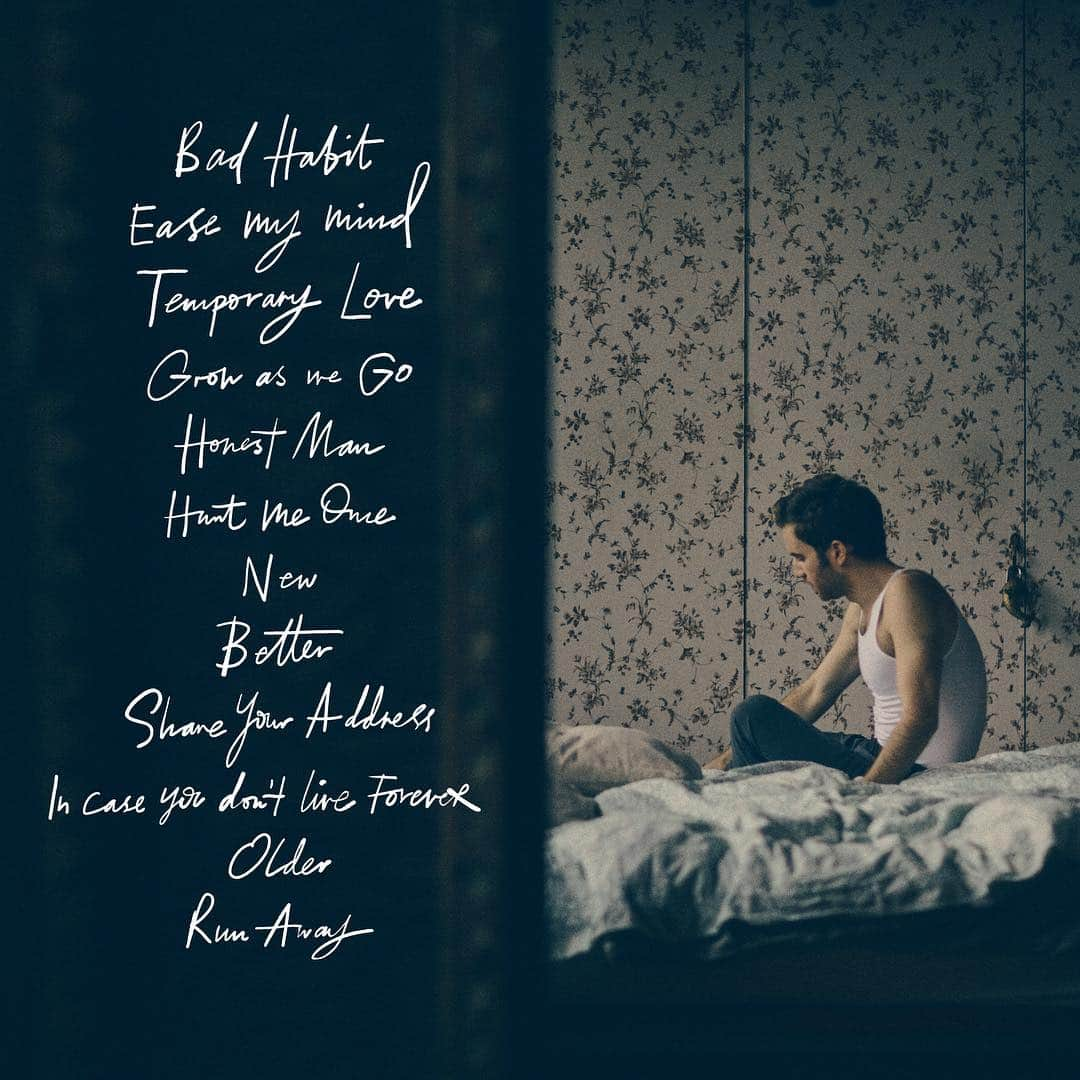 Bad Habit
Ease my mind
Temporary Love
Grow as we Go
Honest Man
Hurt me Once
New
Better
Share Your Address
In case you don't live Forever
Older
Run Away